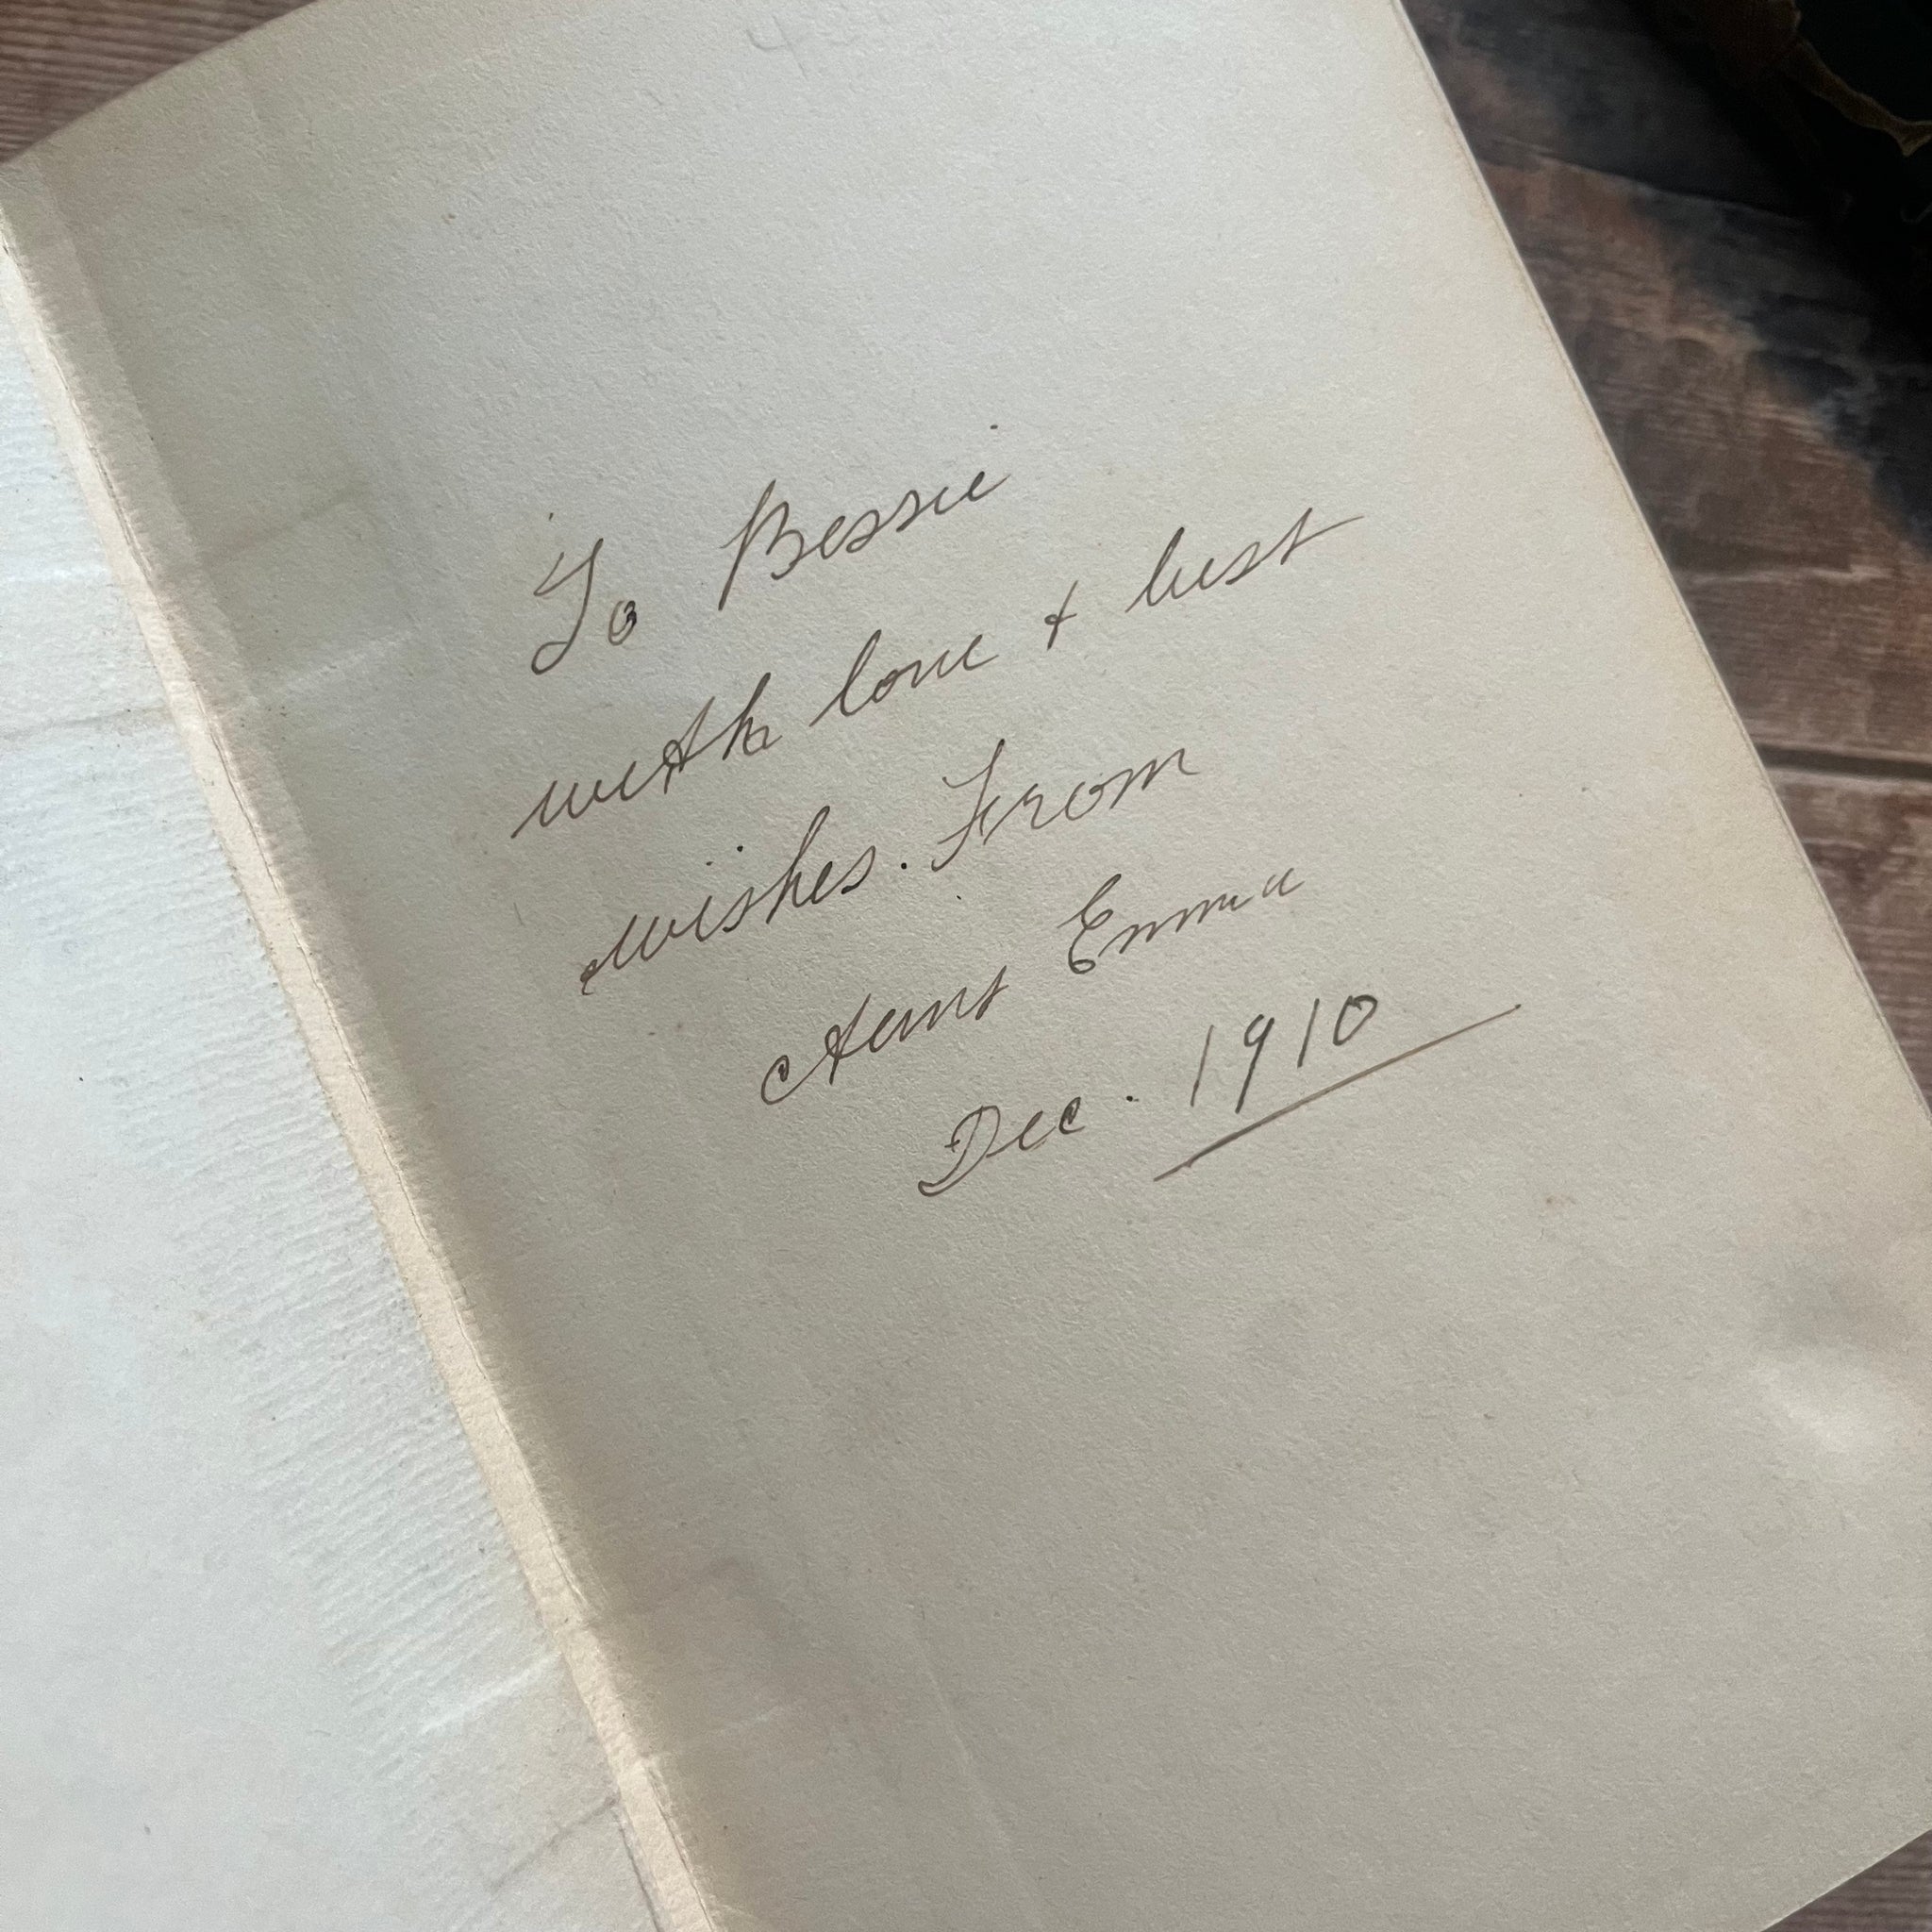 To Bessie
with love & best
wishes. From
Aunt Emma
Dec. 1910